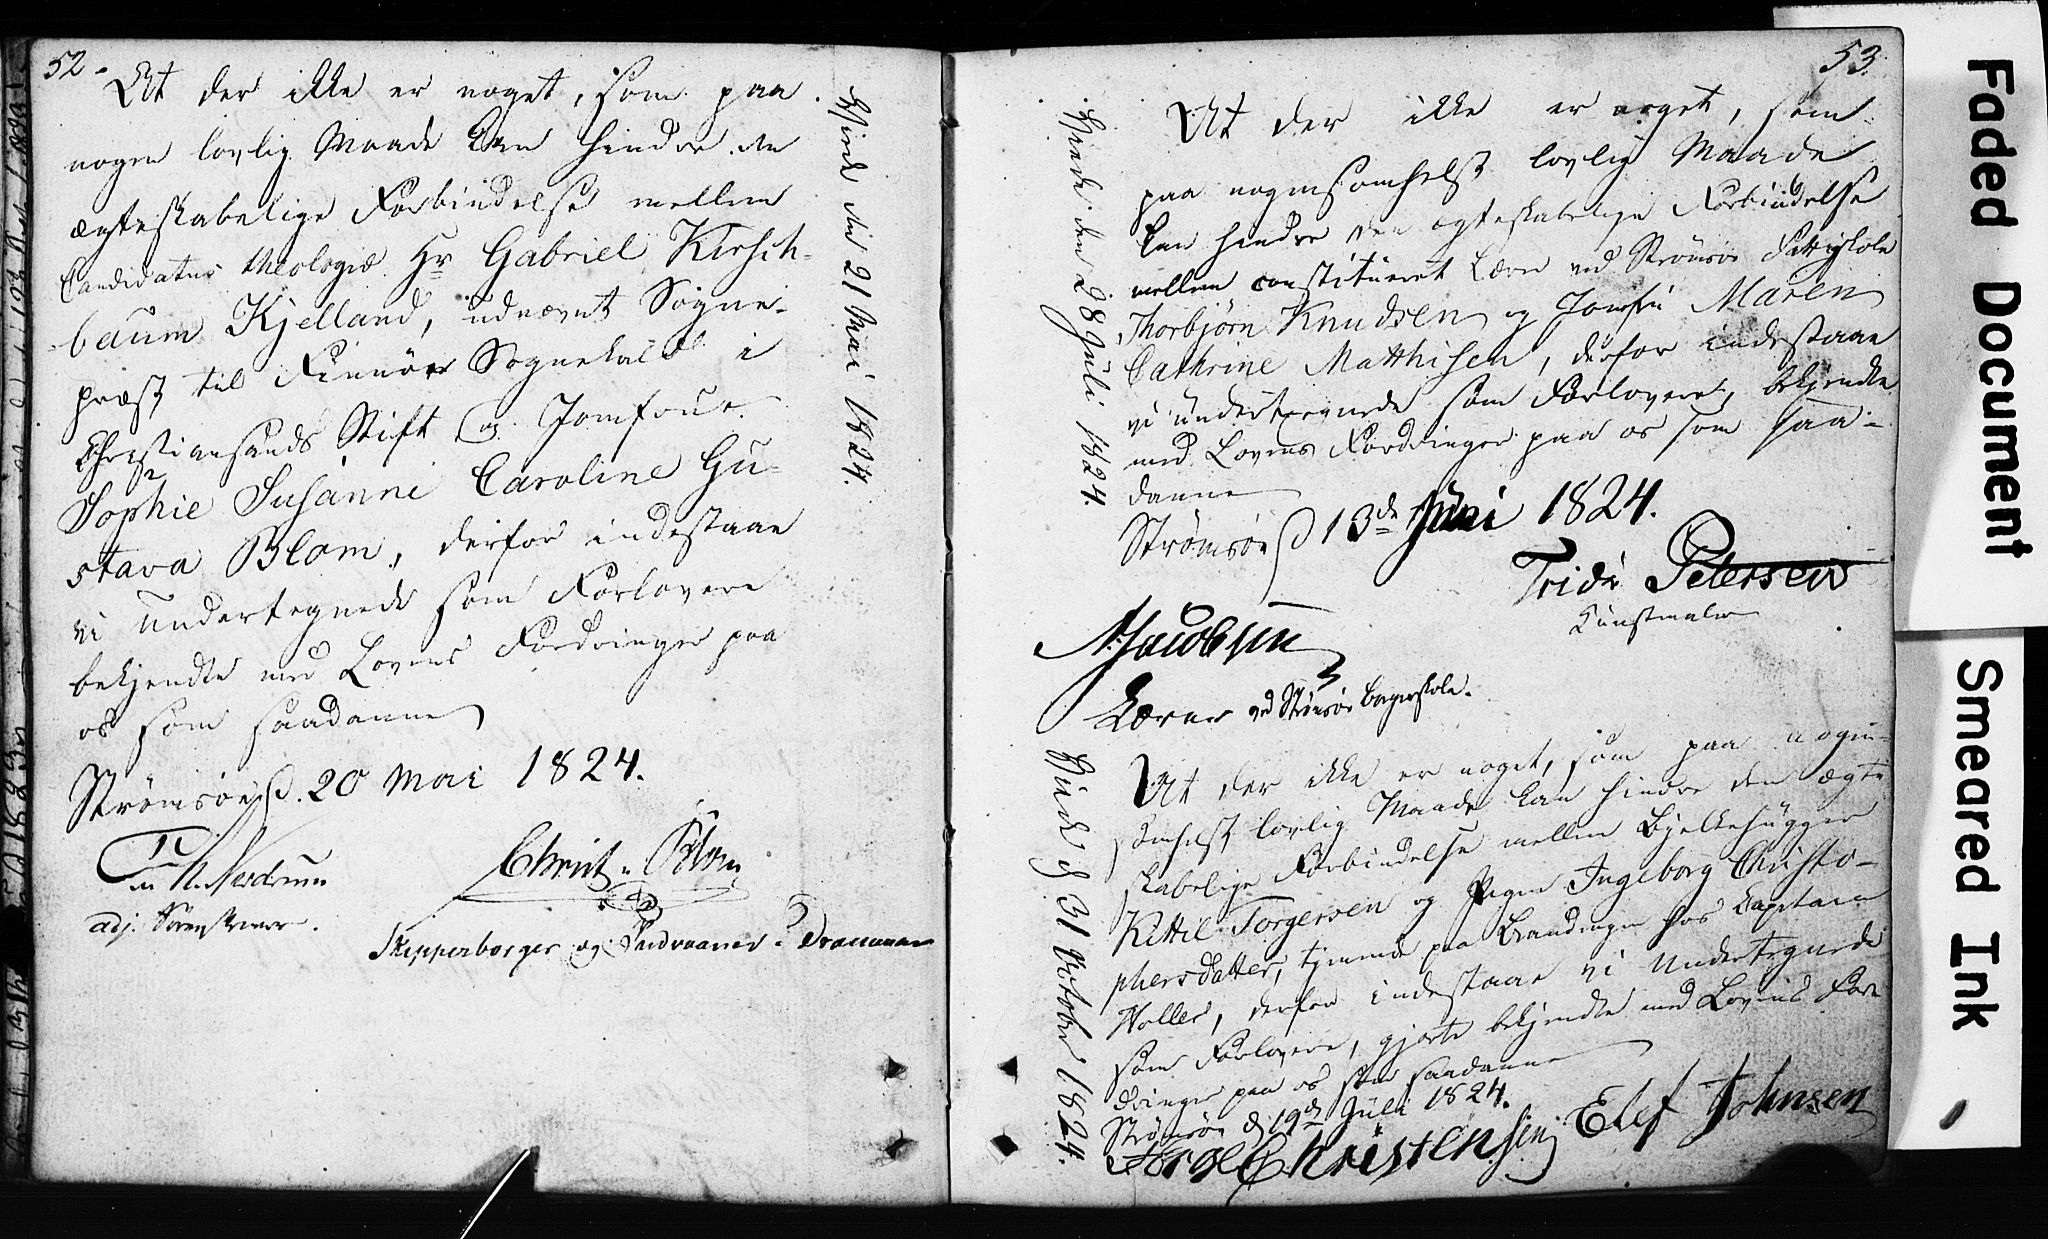 52.
At der ikke er noget, som paa
nogen lovlig Maade kan hindre den
ægteskabelige Forbindelse mellem
Candidatus theologiæ Hr Gabriel Kirsch-
baum Kjelland, udnævnt Sogne-
præst til Finnöe Sognekald i
Christiansands Stift og Jomfrue
Sophie Susanne Caroline Gu-
stava Blom, derfor indestaae
vi undertegnede som Forlovere
bekjendte med Lovens Fordringer paa
os som saadanne
Strømsøe d. 20 Mai 1824.
N. Nerdrum
Christ. Blom
adj.
Skipperborger og i Drammen
Viede den 21 Mai 1824.
53.
At der ikke er noget, som
paa nogensomhelst lovlig Maade
kan hindre den ægteskabelige Forbindelse
mellem constitueret Lærer ved Strømsøe Fattigskole
Thorbjørn Knudsen og Jomfru Maren
Cathrine Matthisen, derfor indestaae
vi undertegnede som Forlovere, bekjendte
med Lovens Fordringer paa os som saa-
danne
Strømsøe d 13de Juni 1824.
Petersen
Kunstmaler
Jacobsen
Lærer ved Strømsøe Borgerskole.
Viede den 28 Juli 1824.
At der ikke er noget, som paa nogen-
somhelst lovlig Maade kan hindre den ægte
skabelige Forbindelse mellem Bjelkehugger
Kittil Torgersen og Pigen Ingeborg Christo-
phersdatter, tjenende paa Grandingen hos Capitain
Holler, derfor indestaae vi Undertegnede
som Forlovere, gjorte bekjendte med Lovens For
dringer paa os som saadanne
Strømsøe d 19de Juli 1824.
Elef Johnsen
Christensen
Viede d 31 October 1824.
Faded Document
Smeared Ink